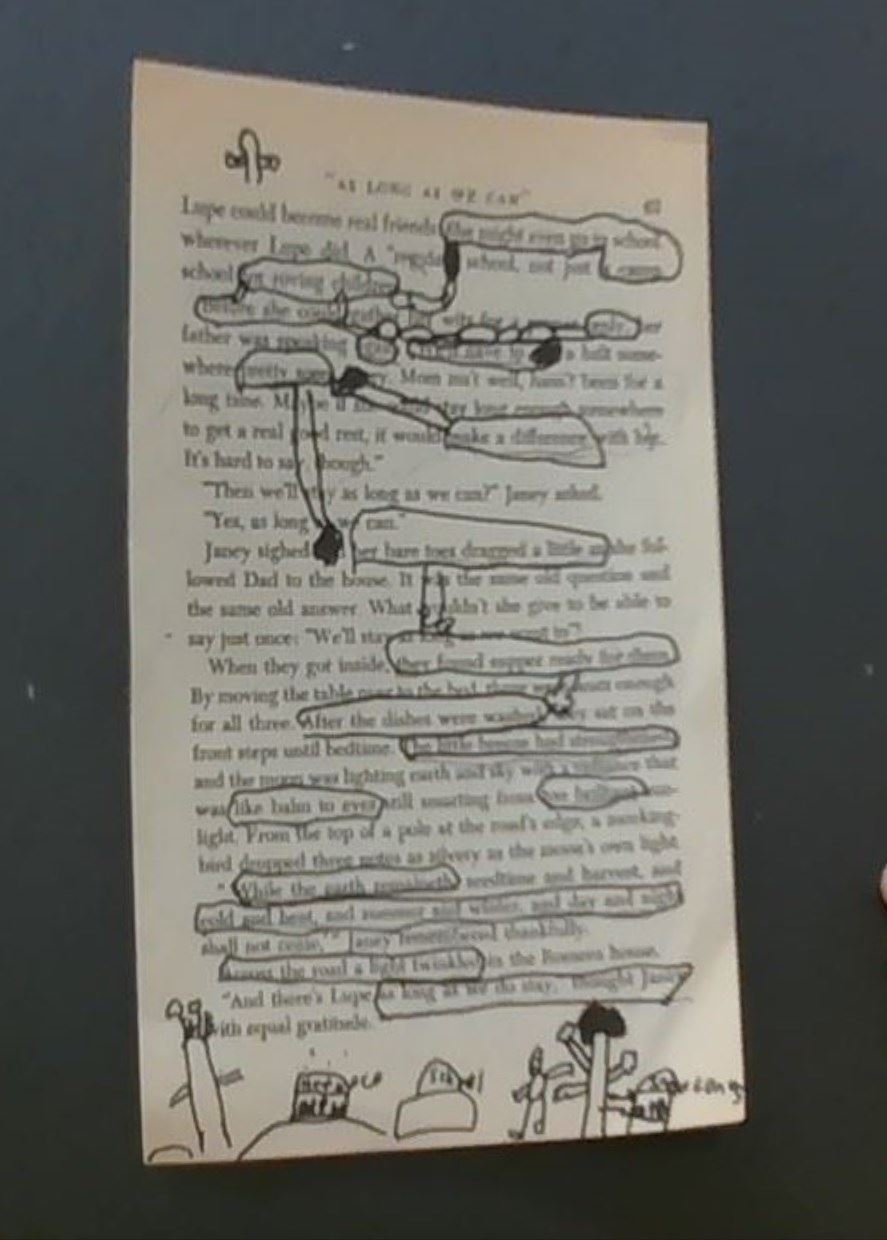 "AS LONG AS WE CAN"
Lupe could become real friends. She might even go to school
wherever Lupe did. A "regular" school, not just a camp
school for roving children.
Before she could gather her wits for a reply, her
father was speaking
where pretty soon Mom isn't well, hasn't been for a
long time. Maybe if she could stay long enough somewhere
to get a real good rest, it would make a difference with her.
It's hard to say, though."
"Then we'll stay as long as we can?" Janey asked.
"Yes, as long as we can."
Janey sighed her bare toes dragged a little as she fol-
lowed Dad to the house. It was the same old question and
the same old answer. What wouldn't she give to be able to
say just once: "We'll stay as long as we want to"!
When they got inside, they found supper ready for them.
By moving the table over to the bed, there was room enough
for all three. After the dishes were washed, they sat on the
front steps until bedtime. The little breeze had strengthened
and the moon was lighting earth and sky with a radiance that
was like balm to eyes still smarting from the brilliant sun-
light. From the top of a pole at the road's edge, a mocking-
bird dropped three notes as silvery as the moon's own light.
" 'While the earth remaineth, seedtime and harvest, and
cold and heat, and summer and winter, and day and night
shall not cease,' " Janey remembered thankfully.
Across the road a light twinkled in the Romero house.
"And there's Lupe as long as we do stay," thought Janey
with equal gratitude.